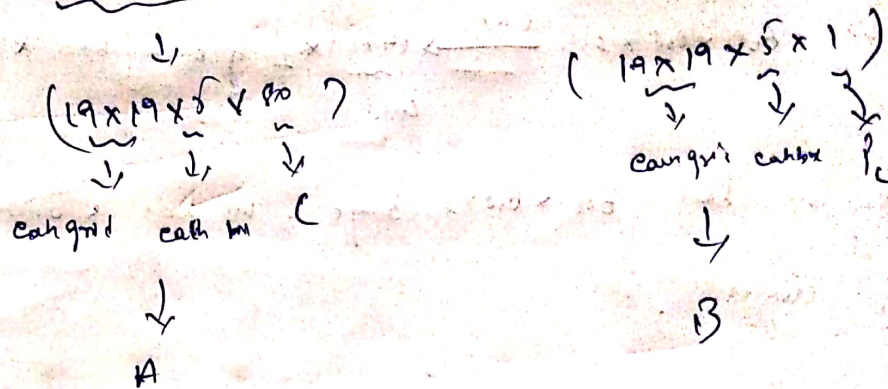 (19x19x5x80)
each grid each box C
A
(19x19x5x1)
each grid each box Pc
B